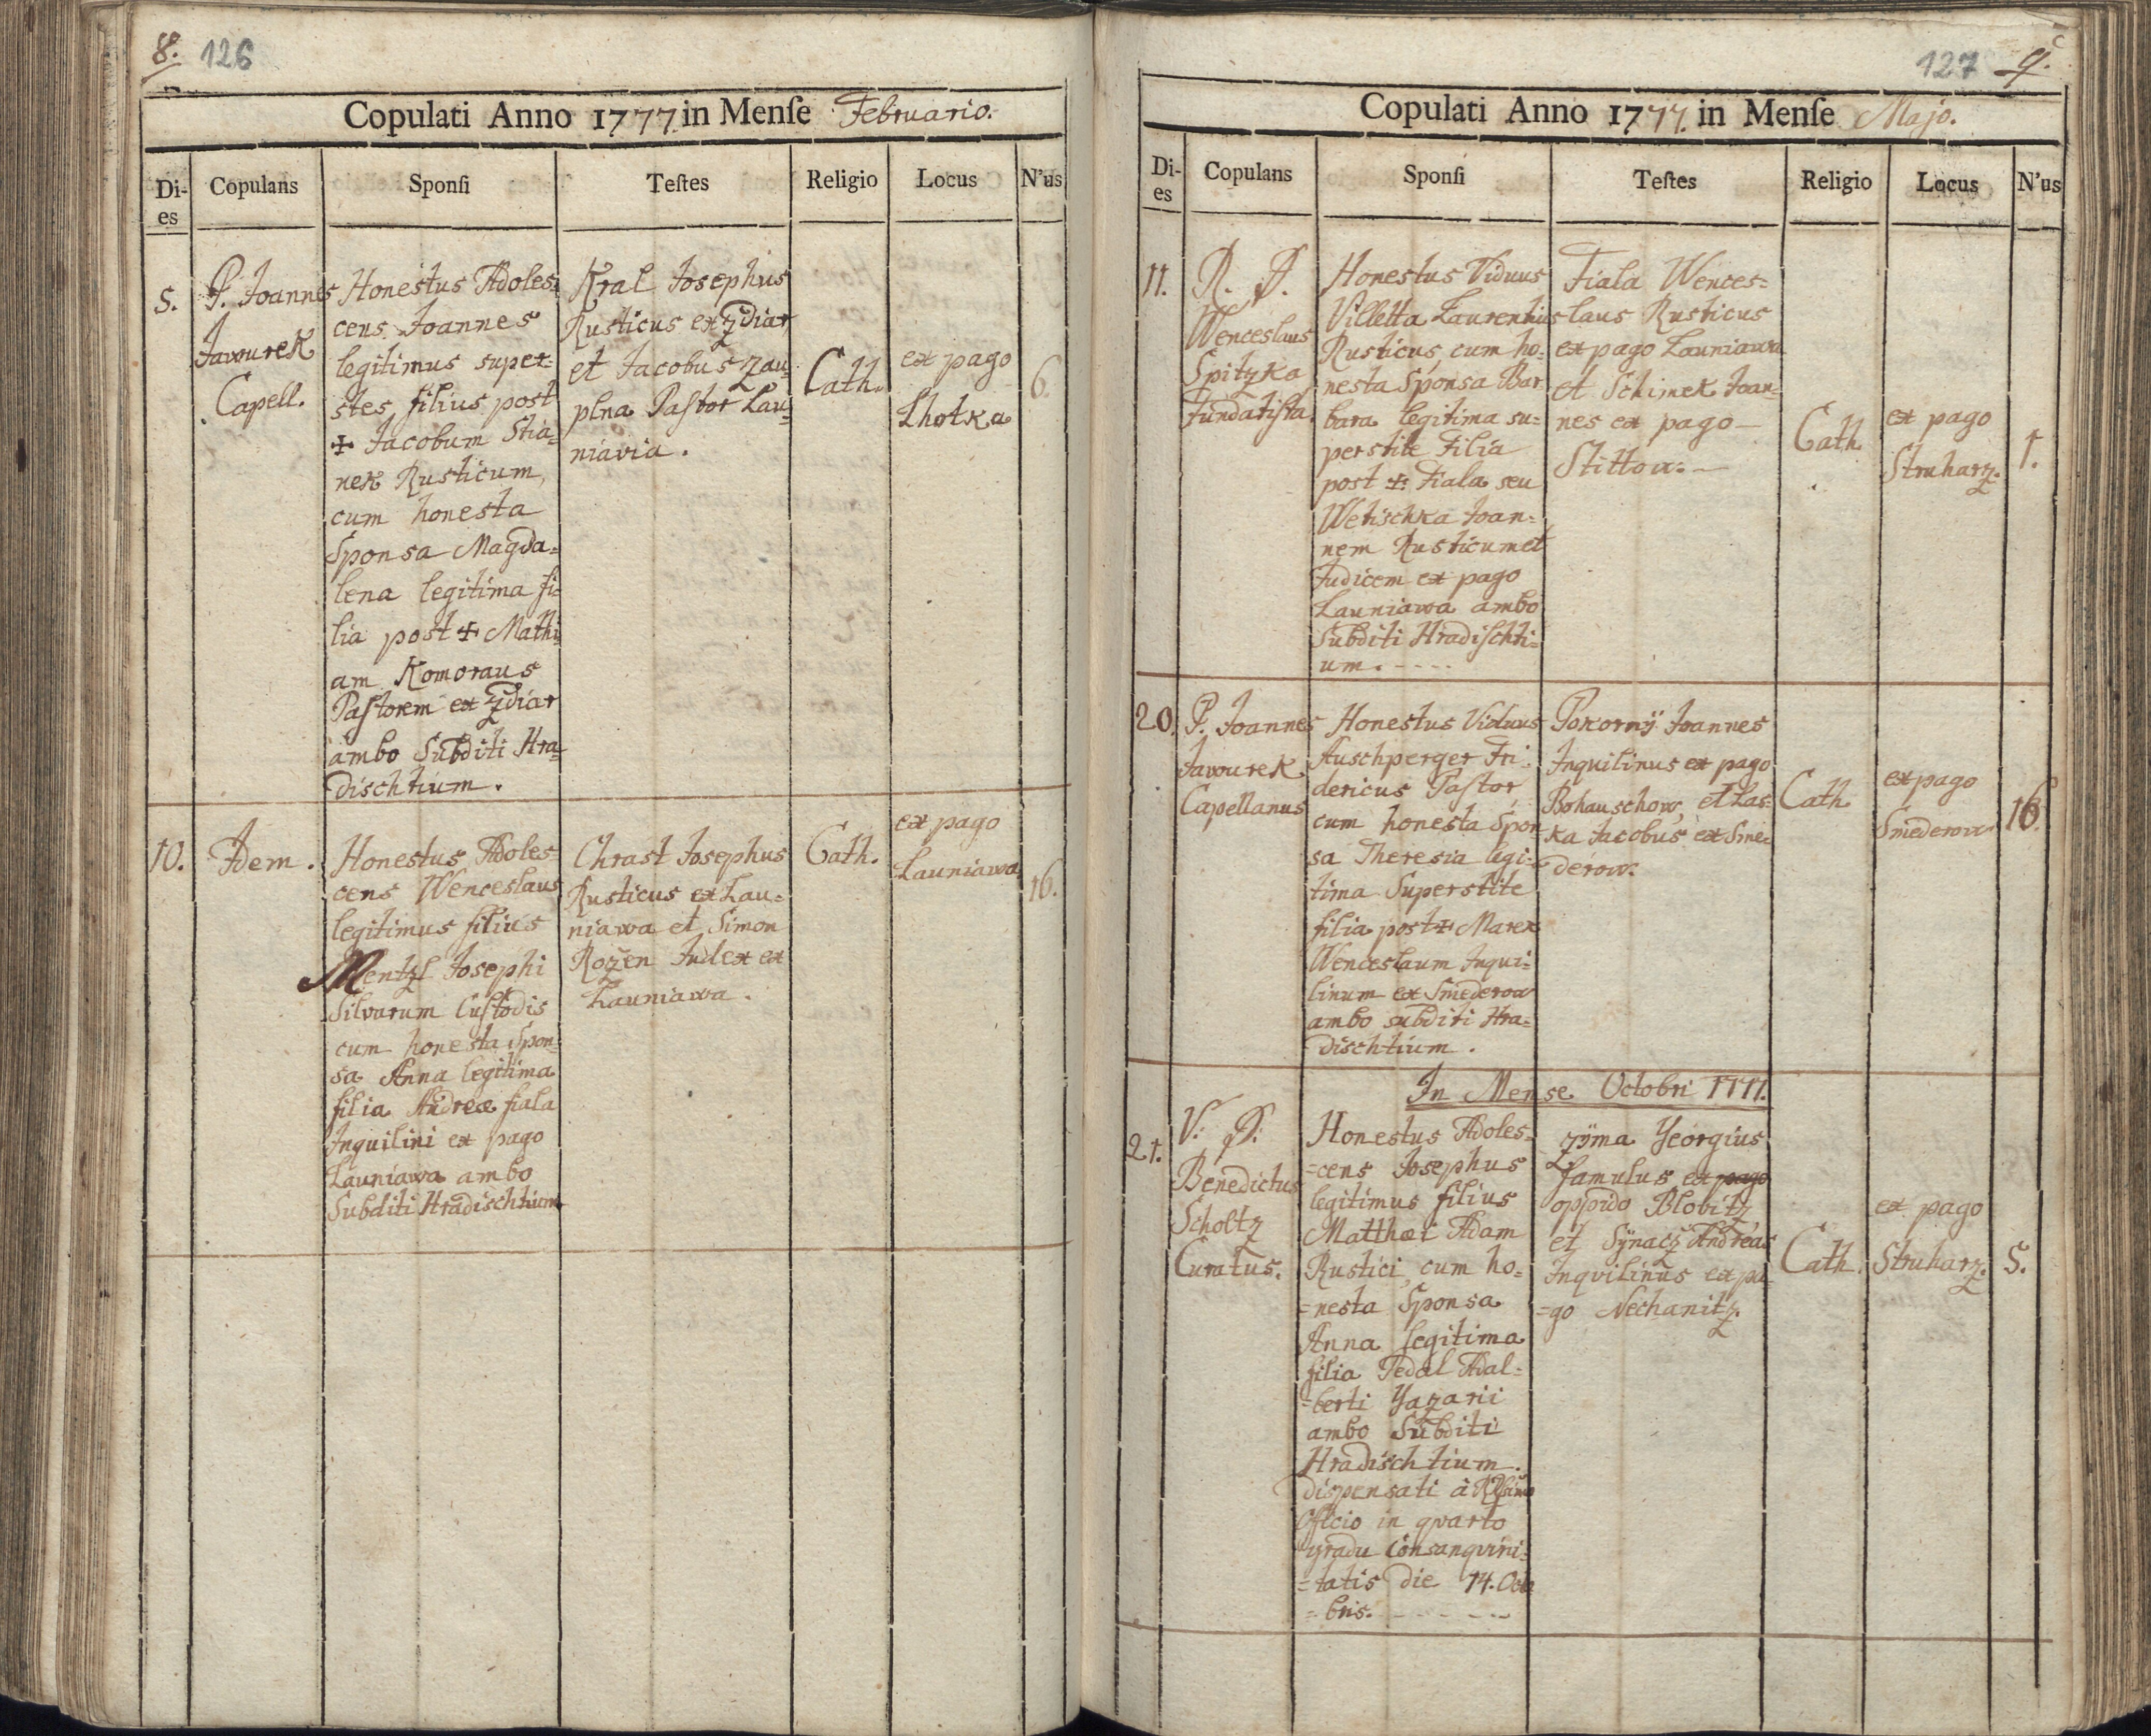 8. 126
Copulati Anno 1777. in Menſe Februario.
Di-
es
Copulans
Sponſi
Teſtes
Religio
Locus
N'us
5.
P. Joannes
Javourek
Capell.
Honestus Adoles=
cens Joannes
legitimus super=
stes filius post
✝ Jacobum Stia=
nek Rusticum,
cum honesta
Sponsa Magda=
lena legitima fi=
lia post ✝ Mathi
am Komoraus
Pastorem ex Zdiar
ambo Subditi Hra=
dischtium.
Kral Josephus
Rusticus ex Zdiar
et Jacobus Zau=
plna Pastor Lau=
niavia.
Cath.
ex pago
Lhotka
6.
10.
Idem.
Honestus Adoles
cens Wenceslaus
legitimus filius
Mentzl Josephi
Silvarum Custodis
cum honesta Spon=
sa Anna legitima
filia Andreæ fiala
Inquilini ex pago
Launiawa ambo
Subditi Hradischtium
Chrast Josephus
Rusticus ex Lau=
niawa et Simon
Rozen Judex ex
Launiawa.
Cath.
ex pago
Launiawa
16.
127 9.
Copulati Anno 1777. in Menſe Majo.
Di-
es
Copulans
Sponſi
Teſtes
Religio
Locus
N'us
11.
R. P.
Wenceslaus
Spitzka
Fundatista.
Honestus Viduus
Villetta Laurentius
Rusticus, cum ho=
nesta Sponsa Bar
bara legitima su=
perstite Filia
post ✝ Fiala seu
Wetischka Joan=
nem Rusticum et
Judicem ex pago
Launiawa ambo
Subditi Hradischti=
um.----
Fiala Wences=
laus Rusticus
ex pago Launiawa
et Schimek Joan=
nes ex pago
Stittow.
Cath
ex pago
Struharz.
1.
20.
P. Joannes
Javourek
Capellanus
Honestus Viduus
Auschperger Fri=
dericus Pastor
cum honesta Spon
sa Theresia legi=
tima Superstite
filia post ✝ Marek
Wenceslaum Inqui=
linum ex Smederow
ambo subditi Hra=
dischtium.
Pokornÿ Joannes
Inquilinus ex pago
Bohauschow, et Las=
ka Jacobus ex Sme=
derow.
Cath.
ex pago
Smederow
16.
In Mense Octobri 1777.
21.
V. P.
Benedictus
Scholtz
Curatus.
Honestus Adoles=
=cens Josephus
legitimus filius
Matthæi Adam
Rustici, cum ho=
=nesta Sponsa
Anna legitima
filia Pedal Adal=
=berti Yazarii
ambo Subditi
Hradischtium.
dispensati à
Officio in quarto
gradu Consanqvini=
=tatis die 14. Octo
=bris.-----
Zÿma Georgius
famulus ex pago
oppido Blobitz
et Sÿnacz Andreas
Inqvilinus ex pa=
=go Nechanitz.
Cath.
ex pago
Struharz.
5.